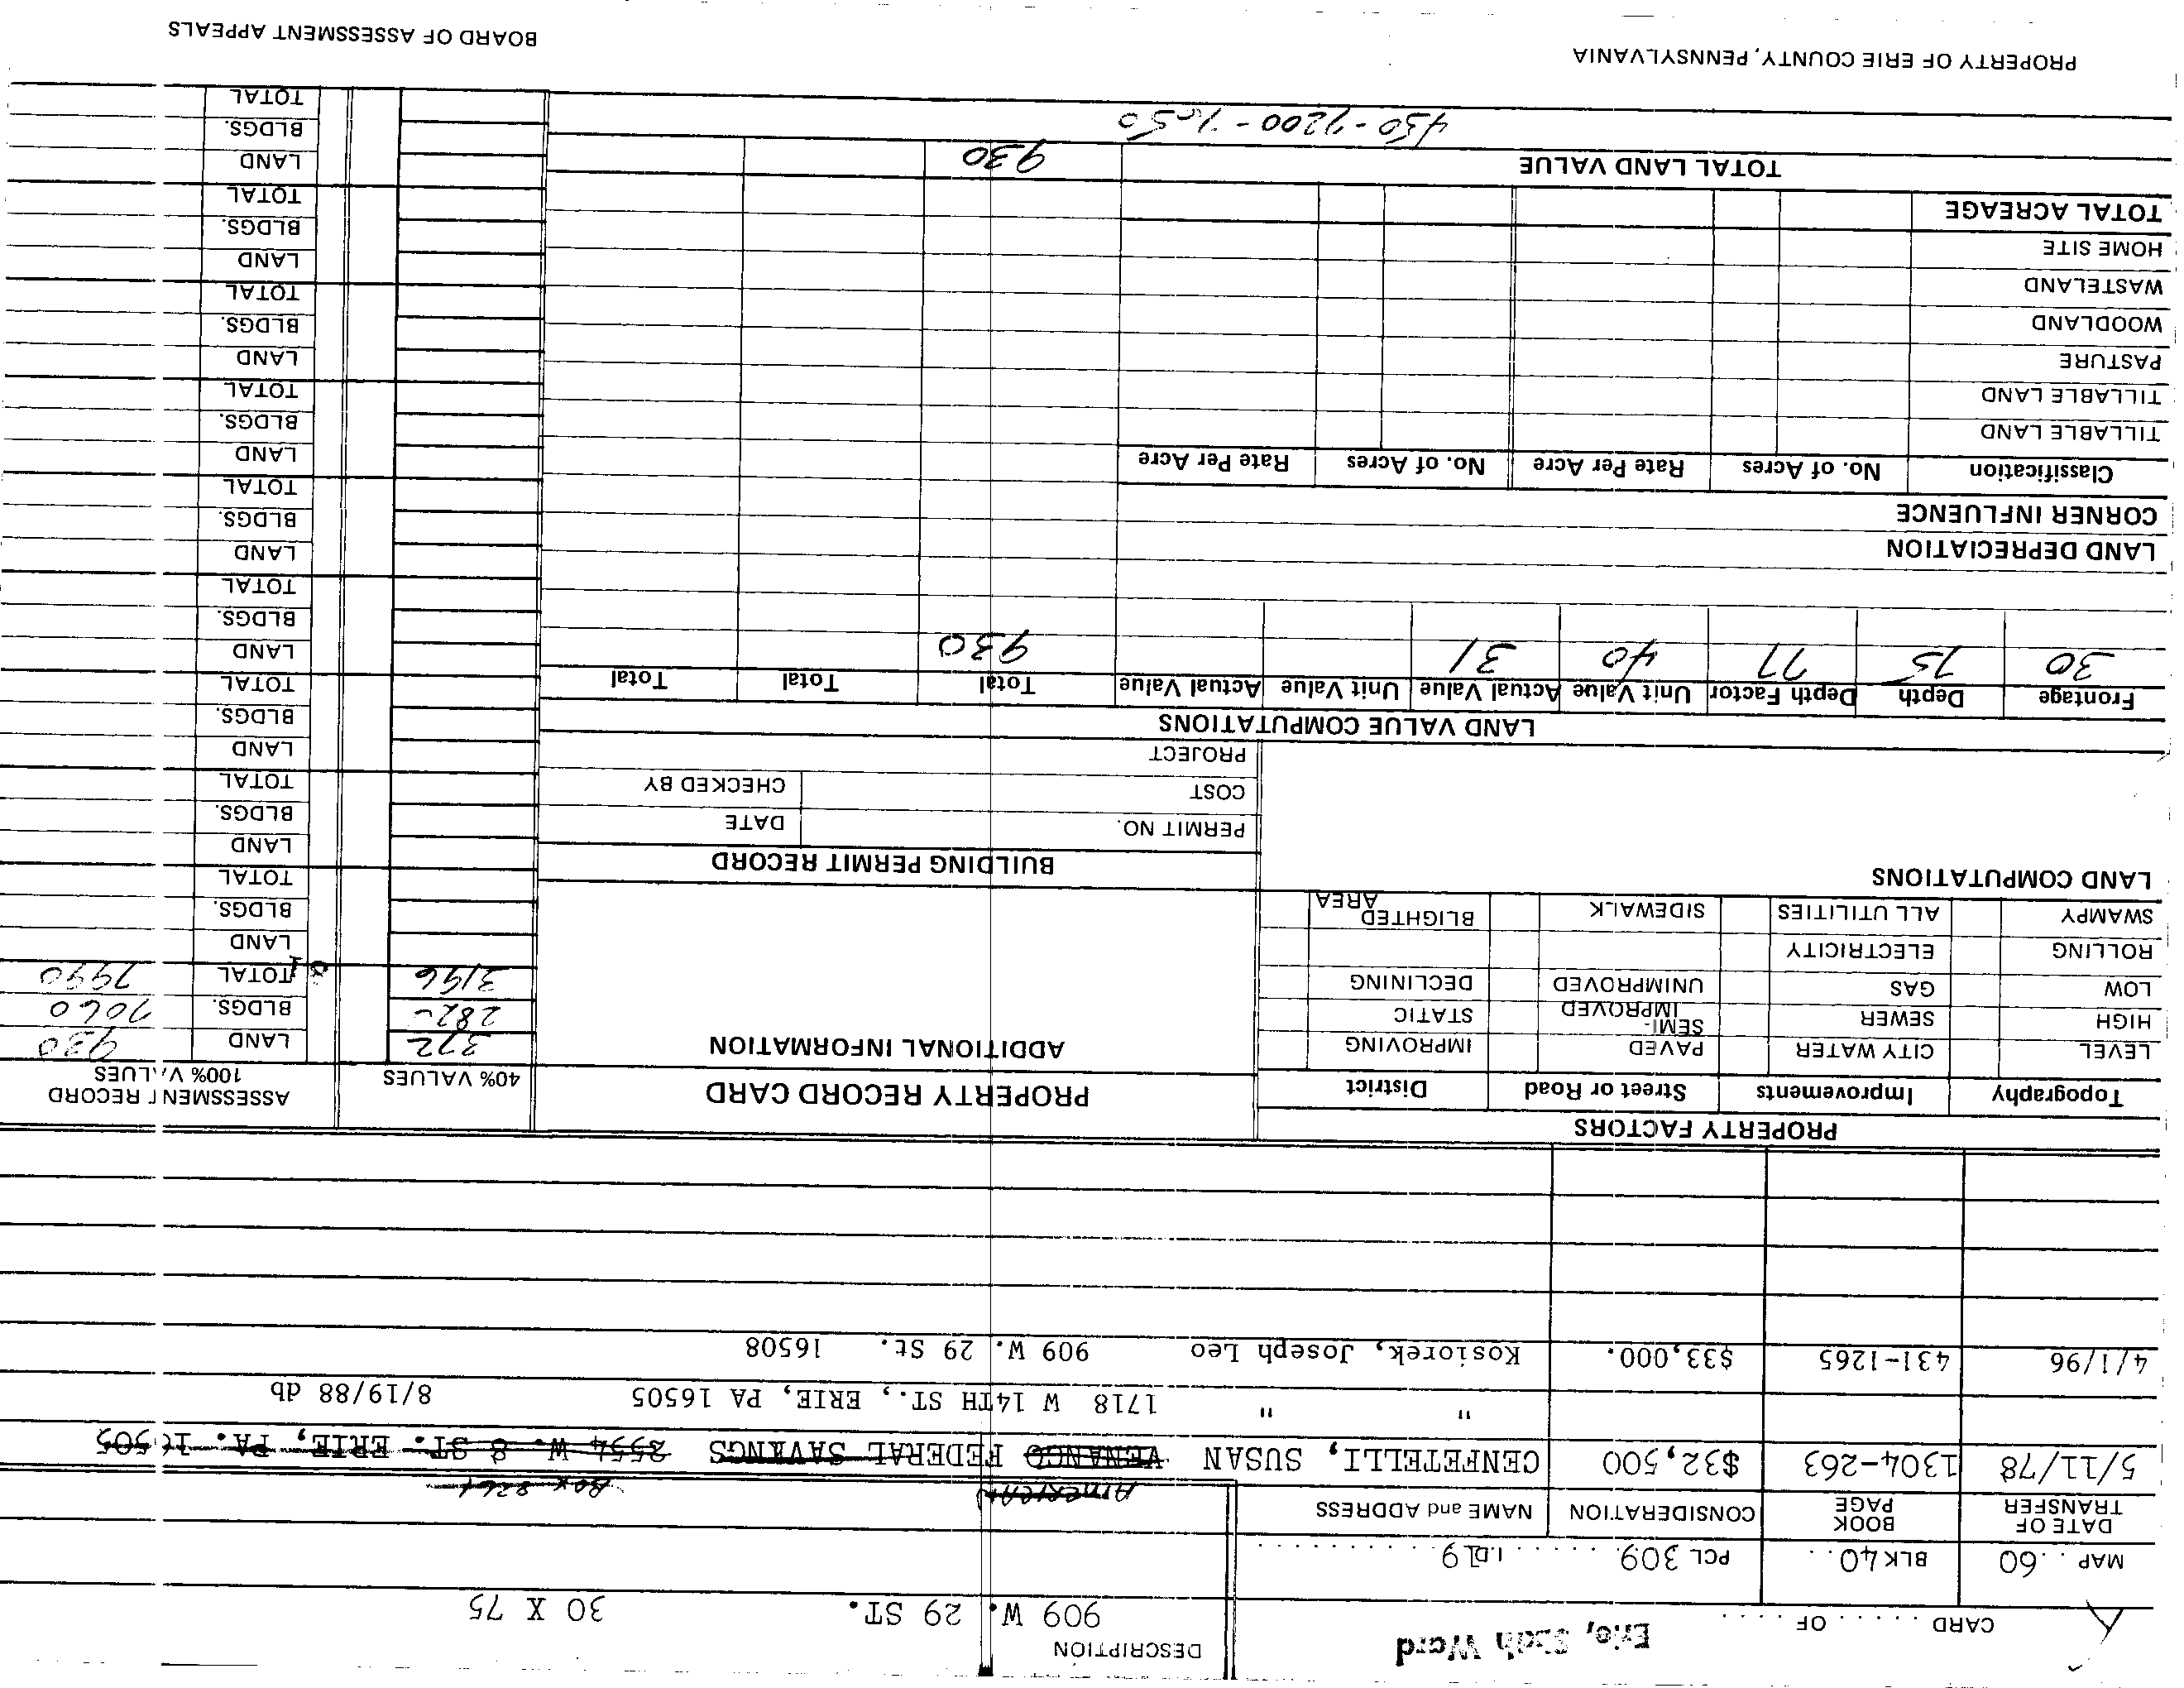 CARD ..... OF ....
Erie, Sixth Ward
DESCRIPTION
909 W. 29 ST. 30 X 75
MAP 60 BLK 40 PCL 309 19
DATE OF TRANSFER BOOK PAGE CONSIDERATION NAME and ADDRESS
American Box 8261
5/11/78 1304-263 $32,500 CENFETELLI, SUSAN VENANGO FEDERAL SAVINGS 2554 W. 8 ST. ERIE, PA. 16505
" " 1718 W 14TH ST., ERIE, PA 16505 8/19/88 db
4/1/96 431-1265 $33,000. Kosiorek, Joseph Leo 909 W. 29 St. 16508
PROPERTY FACTORS
Topography Improvements Street or Road District
LEVEL CITY WATER PAVED IMPROVING
HIGH SEWER SEMI-IMPROVED STATIC
LOW GAS UNIMPROVED DECLINING
ROLLING ELECTRICITY
SWAMPY ALL UTILITIES SIDEWALK BLIGHTED AREA
LAND COMPUTATIONS
PROPERTY RECORD CARD
ADDITIONAL INFORMATION
BUILDING PERMIT RECORD
PERMIT NO. DATE
COST CHECKED BY
PROJECT
40% VALUES ASSESSMENT RECORD 100% VALUES
372 LAND 930
282- BLDGS. 7060
3196 TOTAL 7990
LAND
BLDGS.
TOTAL
LAND
BLDGS.
TOTAL
LAND
BLDGS.
TOTAL
LAND
BLDGS.
TOTAL
LAND
BLDGS.
TOTAL
LAND
BLDGS.
TOTAL
LAND
BLDGS.
TOTAL
LAND
BLDGS.
TOTAL
LAND
BLDGS.
TOTAL
LAND VALUE COMPUTATIONS
Frontage Depth Depth Factor Unit Value Actual Value Unit Value Actual Value Total Total Total
30 75 77 40 31 930
LAND DEPRECIATION
CORNER INFLUENCE
Classification No. of Acres Rate Per Acre No. of Acres Rate Per Acre
TILLABLE LAND
TILLABLE LAND
PASTURE
WOODLAND
WASTELAND
HOME SITE
TOTAL ACREAGE
TOTAL LAND VALUE 930
PROPERTY OF ERIE COUNTY, PENNSYLVANIA BOARD OF ASSESSMENT APPEALS